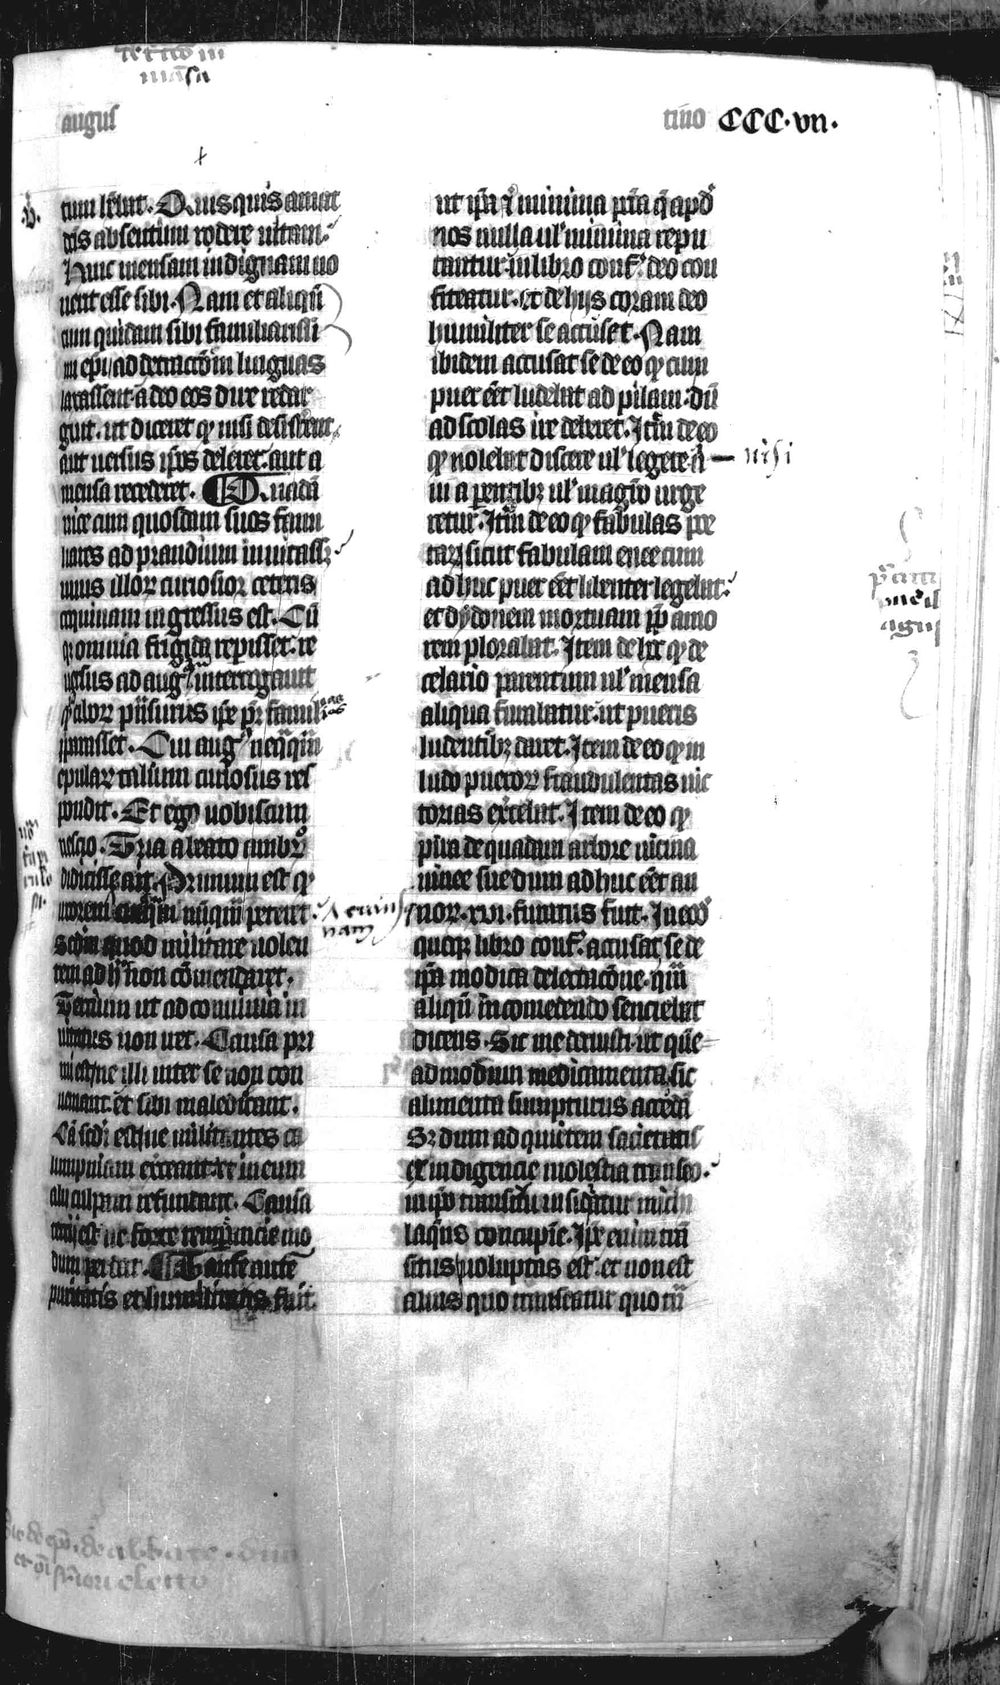 augus
tino CCC·vii·
tum hēbat. Quisquis amat
dc̄is absentum rodere uitam.
Hanc mensam indignam no
uerit esse sibi. Nam et aliqn̄
cum quidam sibi familiarissi
mi ep̄i ad detractōem linguas
laxassent adeo eos dure redar
guit. ut diceret qꝫ nisi desisterent
aut uersus ip̄os deleret. aut a
mensa recederet. Quadā
uice cum quosdam suos fami
liares ad prandium inuitassꝫ
unus illoꝝ curiosior ceteris
coquinam ingressus est. Cū
qꝫ omnia frigida repisset. re
uersus ad augᵒ interrogauit
alioꝝ
ip̄arasset. Cui augᵒ neq̄q̄m
epulaꝝ talium curiosus res
pondit. Et ego uobiscum
nescio. Tria a beato ambrᵒ
didicisse ait. Primum est qꝫ
uxorem nūquā peteret.
scd̄m quod militare uolen
tem ad hᵒ non cōmendaret.
Tertium ut ad conuiuia in
uitatus non iret. Causa pri
mi est ne illi inter se non con
ueniant. et sibi maledicant.
Cā scd̄i est ne militantes ca
lumpniam exerceant et in eum
alii culpam refundant. Causa
tercii est ne forte temperancie mo
dum perdat. Tante autē
puritatis et humilitatis fuit.
ut ip̄a et minima pctā q̄ apud
nos nulla ul' minima repu
tantur. in libro conf. deo con
fiteatur. et de hijs coram deo
humiliter se accuset. Nam
ibidem accusat se de eo qꝫ cum
puer eēt ludebat ad pilam. dū
ad scolas ire deberet. Itē de eo
qꝫ nolebat discere ul' legere
nisi
a parentibꝫ ul' magrō urge
retur. Itē de eo qꝫ fabulas poe
tarꝫ sicut fabulam enee cum
adhuc puer eēt libenter legebat.
et dydonem mortuam pp̄ amo
rem plorabat. Item de hoc qꝫ de
celario parentum ul' mensa
aliqua furabatur. ut pueris
ludentibꝫ daret. Item de eo qꝫ in
ludo pueroꝝ fraudulentas uic
torias exercebat. Item de eo qꝫ
pira de quadam arbore uicina
uinee sue dum adhuc eēt an
noꝝ xvi. furatus fuit. In eodᵒ
quoqꝫ libro conf. accusat se de
ip̄a modica delectacōne. quā
aliqn̄ in comedendo senciebat
dicens. Sic me docuisti. ut quē
admodum medicamenta. sic
alimenta sumpturus accedā
Sꝫ dum ad quietem sacietatis
ex indigencie molestia transeo.
in ip̄o transitu insidiatur michi
laqus concupie. Ipse enim trā
situs uoluptas est. et non est
alius quo transeatur quo trā